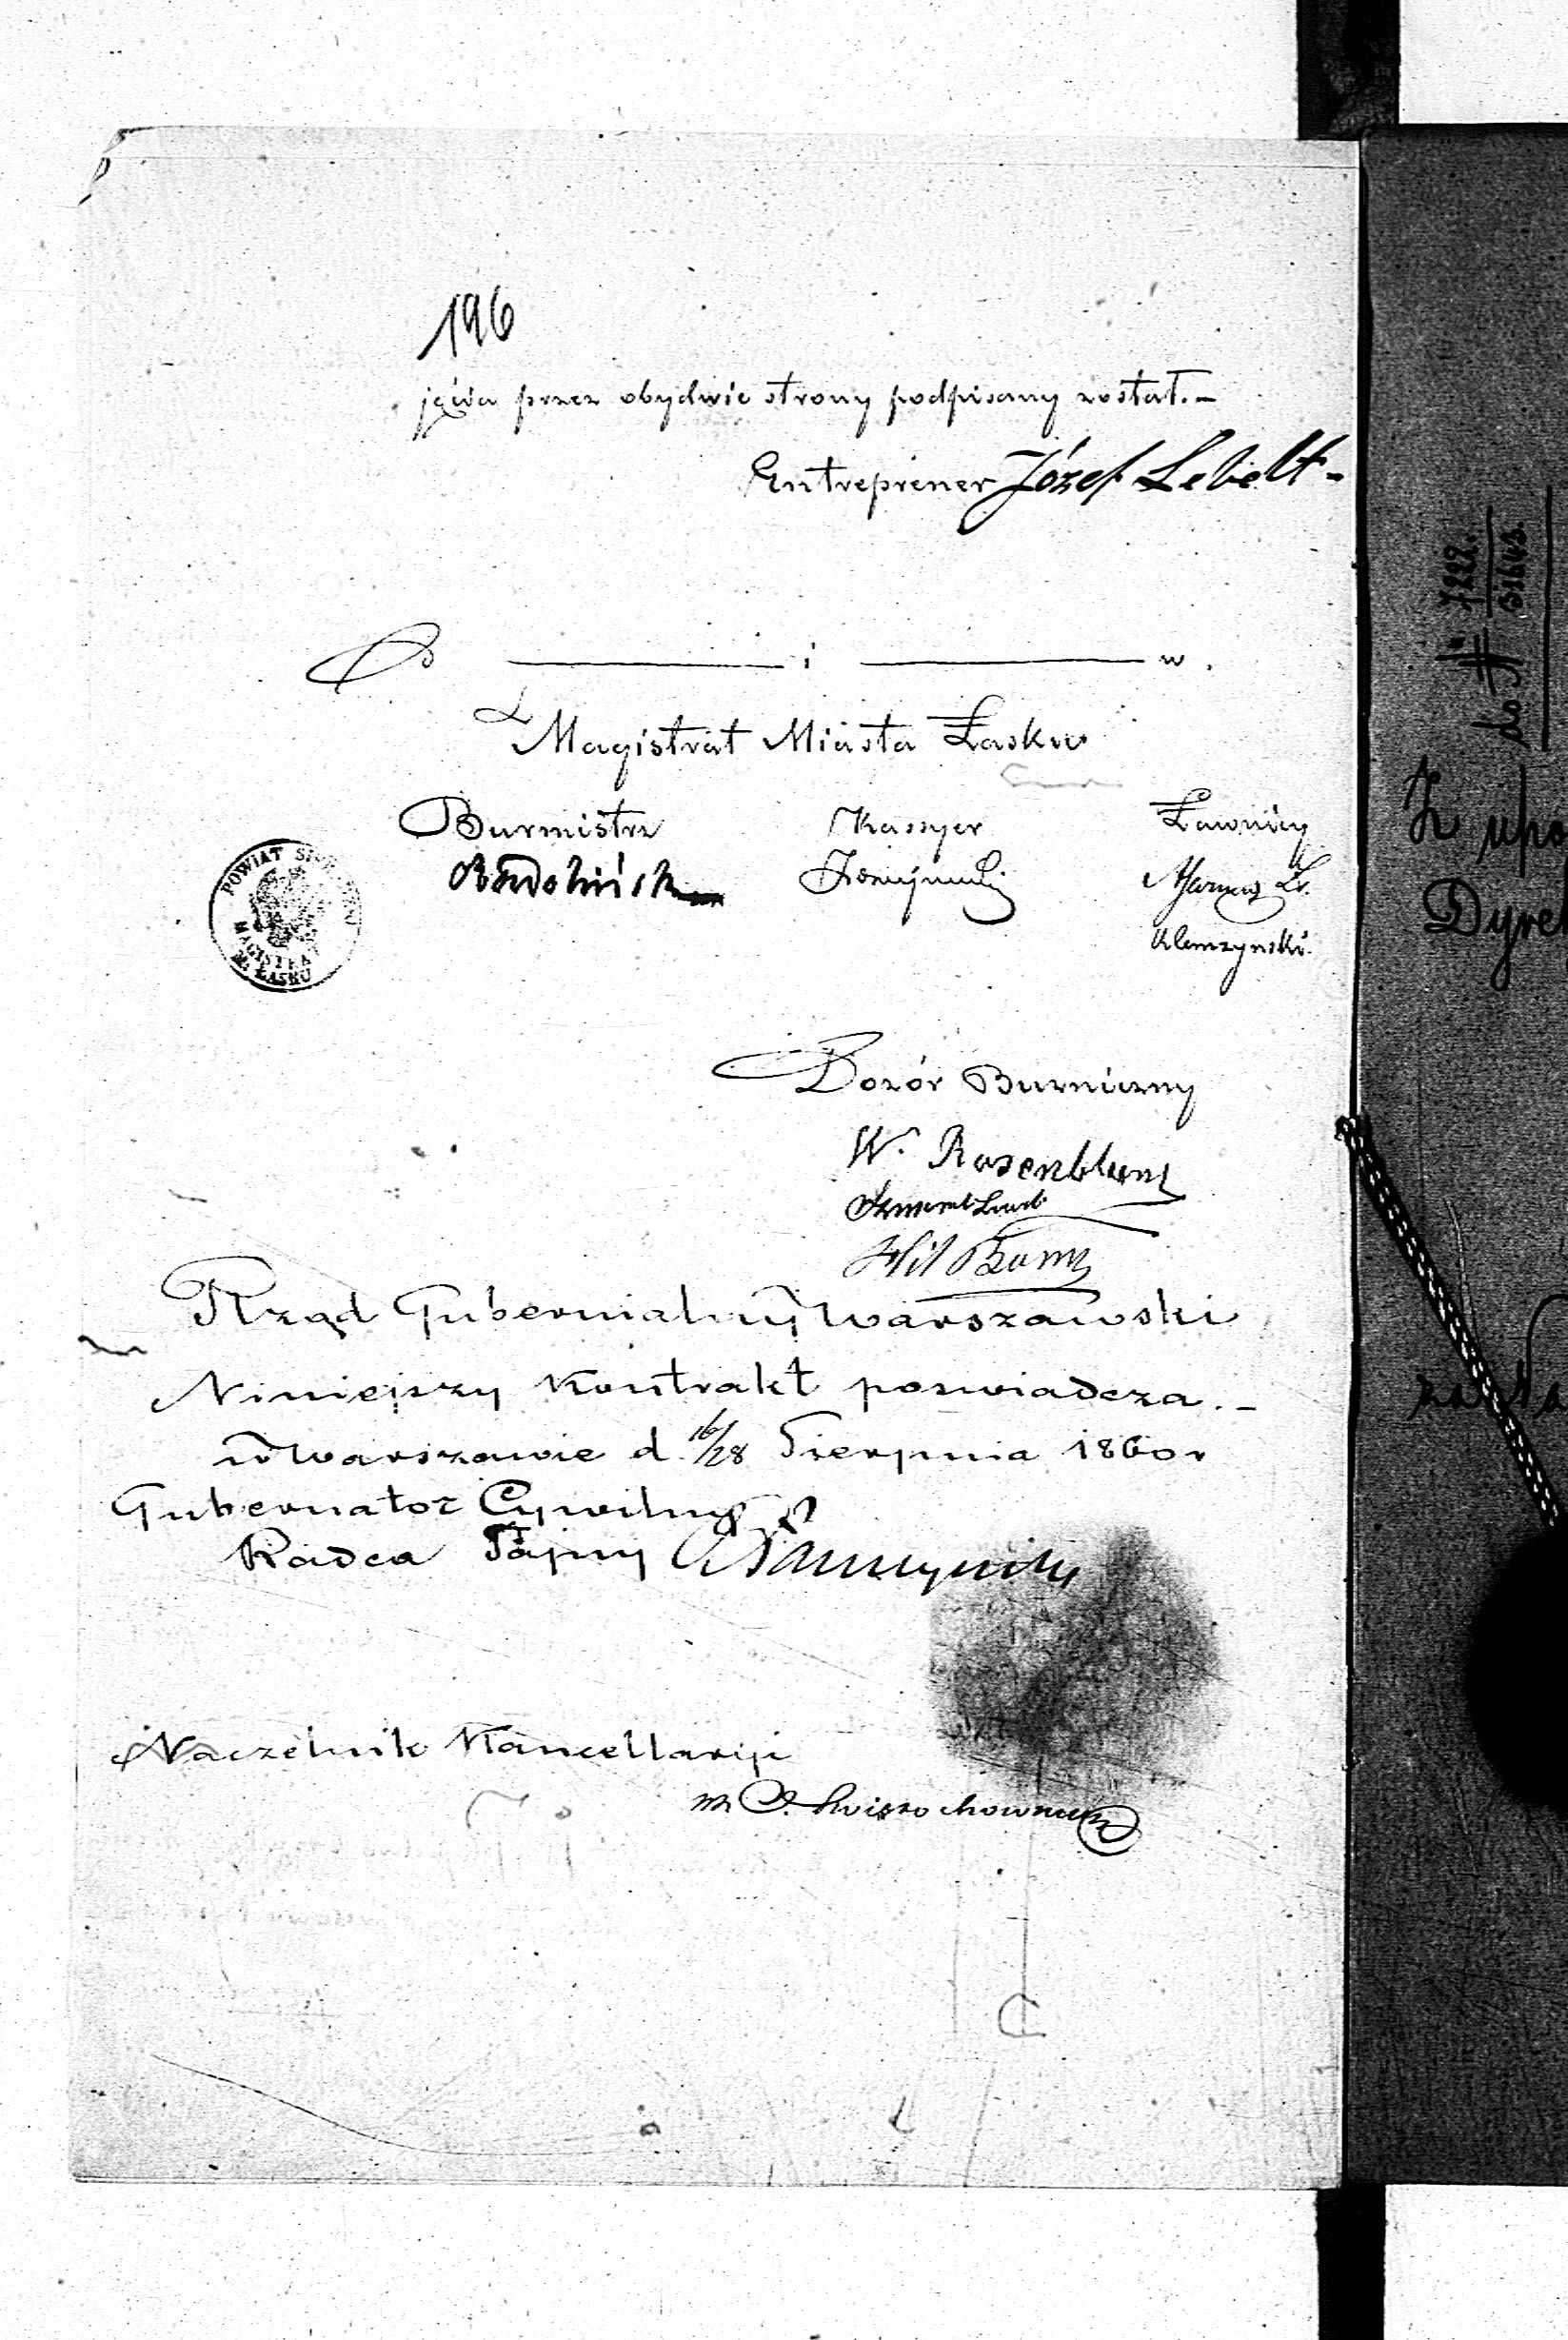 196
jęcia przez obydwie strony podpisany został.-
Entreprener Józef Lebelt-
i w.
Magistrat Miasta Łasku
Burmistrz Kassyer Ławnicy
Klemzynski.
POWIAT
MAGISTRAT
M. ŁASKU
Dozór Bużniczny
W. Rosenblum
Rząd Gubernialny Warszawski
Niniejszy Kontrakt poswiadcza.-
w Warszawie d. 16/28 Sierpnia 1860 r
Gubernator Cywilny
Radca Tajny
Naczelnik Kancellaryi
do # 7222.
31643.
Z upo
Dyre